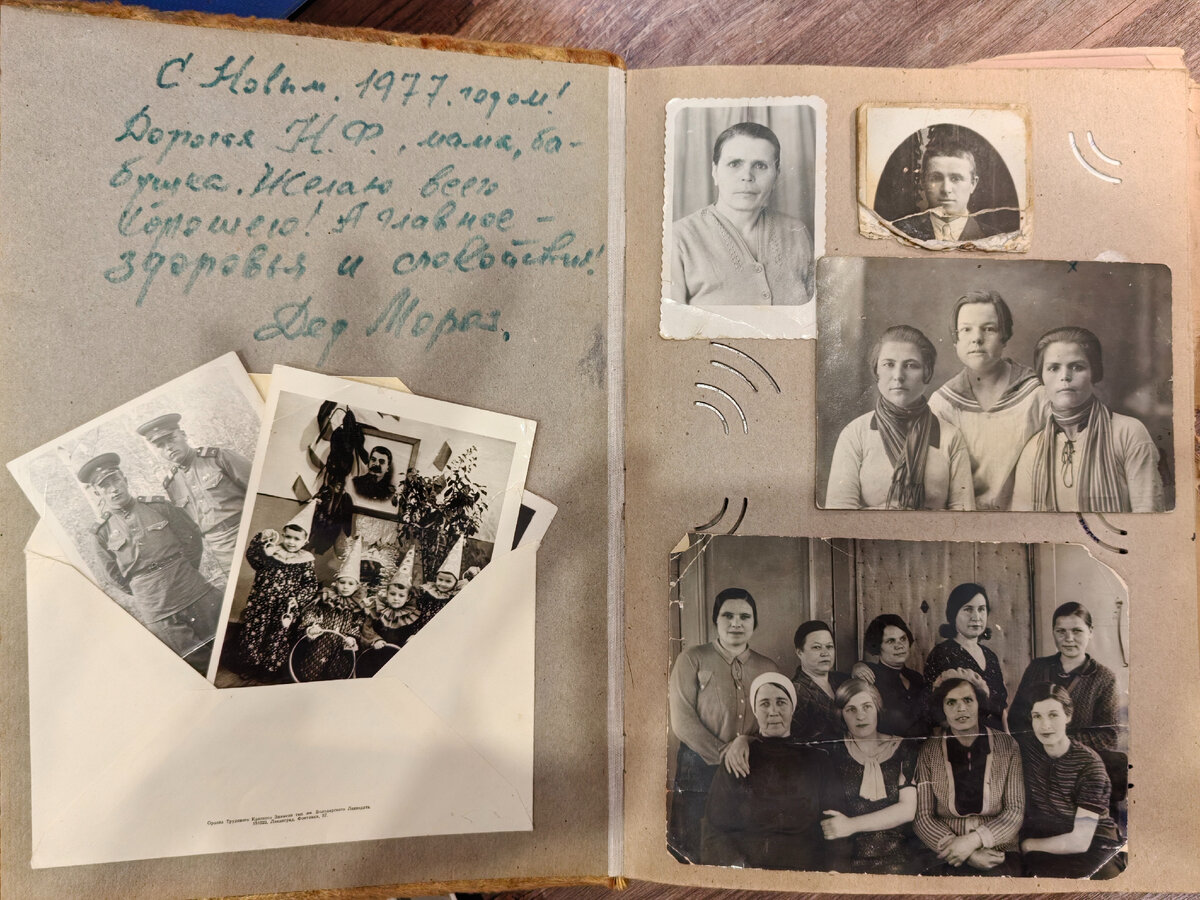 С Новым. 1977. годом!
Дорогая Н. Ф., мама, ба-
бушка. Желаю всего
хорошего! А главное -
здоровья и спокойствия!
Дед Мороз.
Ордена Трудового Красного Знамени тип. им. Володарского Лениздата
191023, Ленинград, Фонтанка, 57.